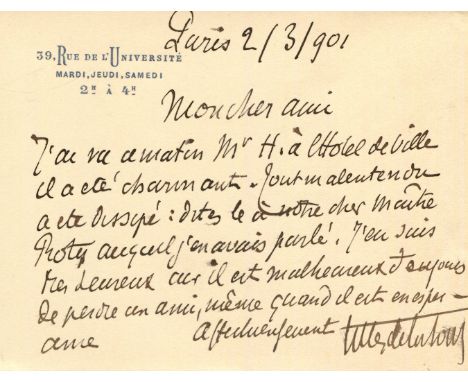 Paris 2/3/901
39, RUE DE L'UNIVERSITÉ
MARDI, JEUDI, SAMEDI
2H À 4H
Mon cher ami
J'ai vu ce matin Mr H. à l'Hotel de Ville
il a été charmant. Tout malentendu
a été dissipé : dites le à notre cher Maître
auquel j'en avais parlé. J'en suis
très heureux car il est malheureux toujours
de perdre un ami, même quand il est en esper-
ance
Affectueusement